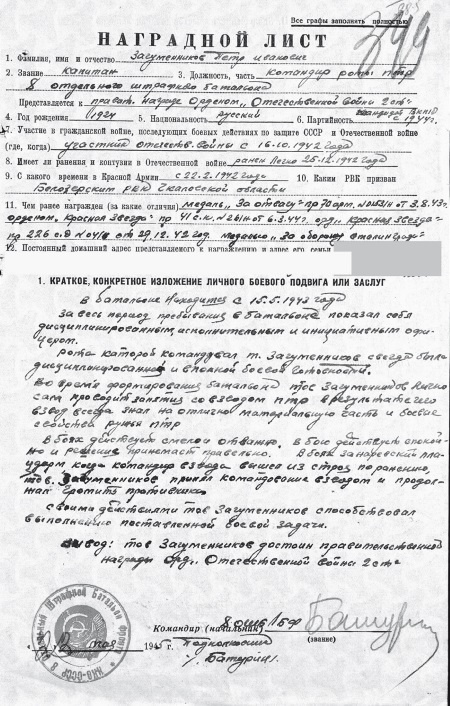 Все графы заполнять полностью
НАГРАДНОЙ ЛИСТ
1. Фамилия, имя и отчество Загуменников Петр Иванович
2. Звание капитан 3. Должность, часть командир роты ПТР
8 отдельного штрафного Батальона
Представляется к правит. Награде Орденом „Отечественной Войны 2 ст“
4. Год рождения 1924 5. Национальность русский 6. Партийность с 1944 г.
7. Участие в гражданской войне, последующих боевых действиях по защите СССР и Отечественной войне
(где, когда) участник отечеств. Войны с 16.10.1942 года
8. Имеет ли ранения и контузии в Отечественной войне ранен Легко 25.12.1942 года
9. С какого времени в Красной Армии с 22.2.1942 года 10. Каким РВК призван
Белозерским РВК Чкаловской области
11. Чем ранее награжден (за какие отличия) медаль „За отвагу“ от 3.8.43г.
орденом „Красная Звезда“ пр 41 с.к. №26/н от 6.3.44г. орд „Красная Звезда“
пр 226 с.д №04/н от 29.12.42 год. медалью „За оборону Сталинграда“
12. Постоянный домашний адрес представляемого к награждению и адрес его семьи
1. КРАТКОЕ, КОНКРЕТНОЕ ИЗЛОЖЕНИЕ ЛИЧНОГО БОЕВОГО ПОДВИГА ИЛИ ЗАСЛУГ
В батальоне Находится с 15.5.1943 года
За весь период пребывания в Батальоне показал себя
дисциплинированным, исполнительным и инициативным офи-
цером.
Рота которой командувал т. Загуменников всегда была
дисциплинированной и в полной боевой готовности.
Во время формирования батальона тов Загуменников Лично
сам проводит занятия со взводом ПТР в результате чего
взвод всегда знал на отлично материальную часть и боевые
свойства ружья ПТР
В боях действует смело и отважно. в бою действует спокой-
но и решение принемает правельно. В боях за наревский пла-
цдарм когда командир взвода вышел из строя по ранению,
тов. Загуменников принял командование взводом и продол-
жал громить противника
своими действиями тов Загуменников способствовал
выполнению поставленной боевой задачи.
вывод: тов Загуменников достоин правительственной
награды Орд. „Отечественной Война 2 ст“
Командир (начальник) 8 ОШБ 1БФ
Подполковник (звание)
1945 г.
/Батурин/.